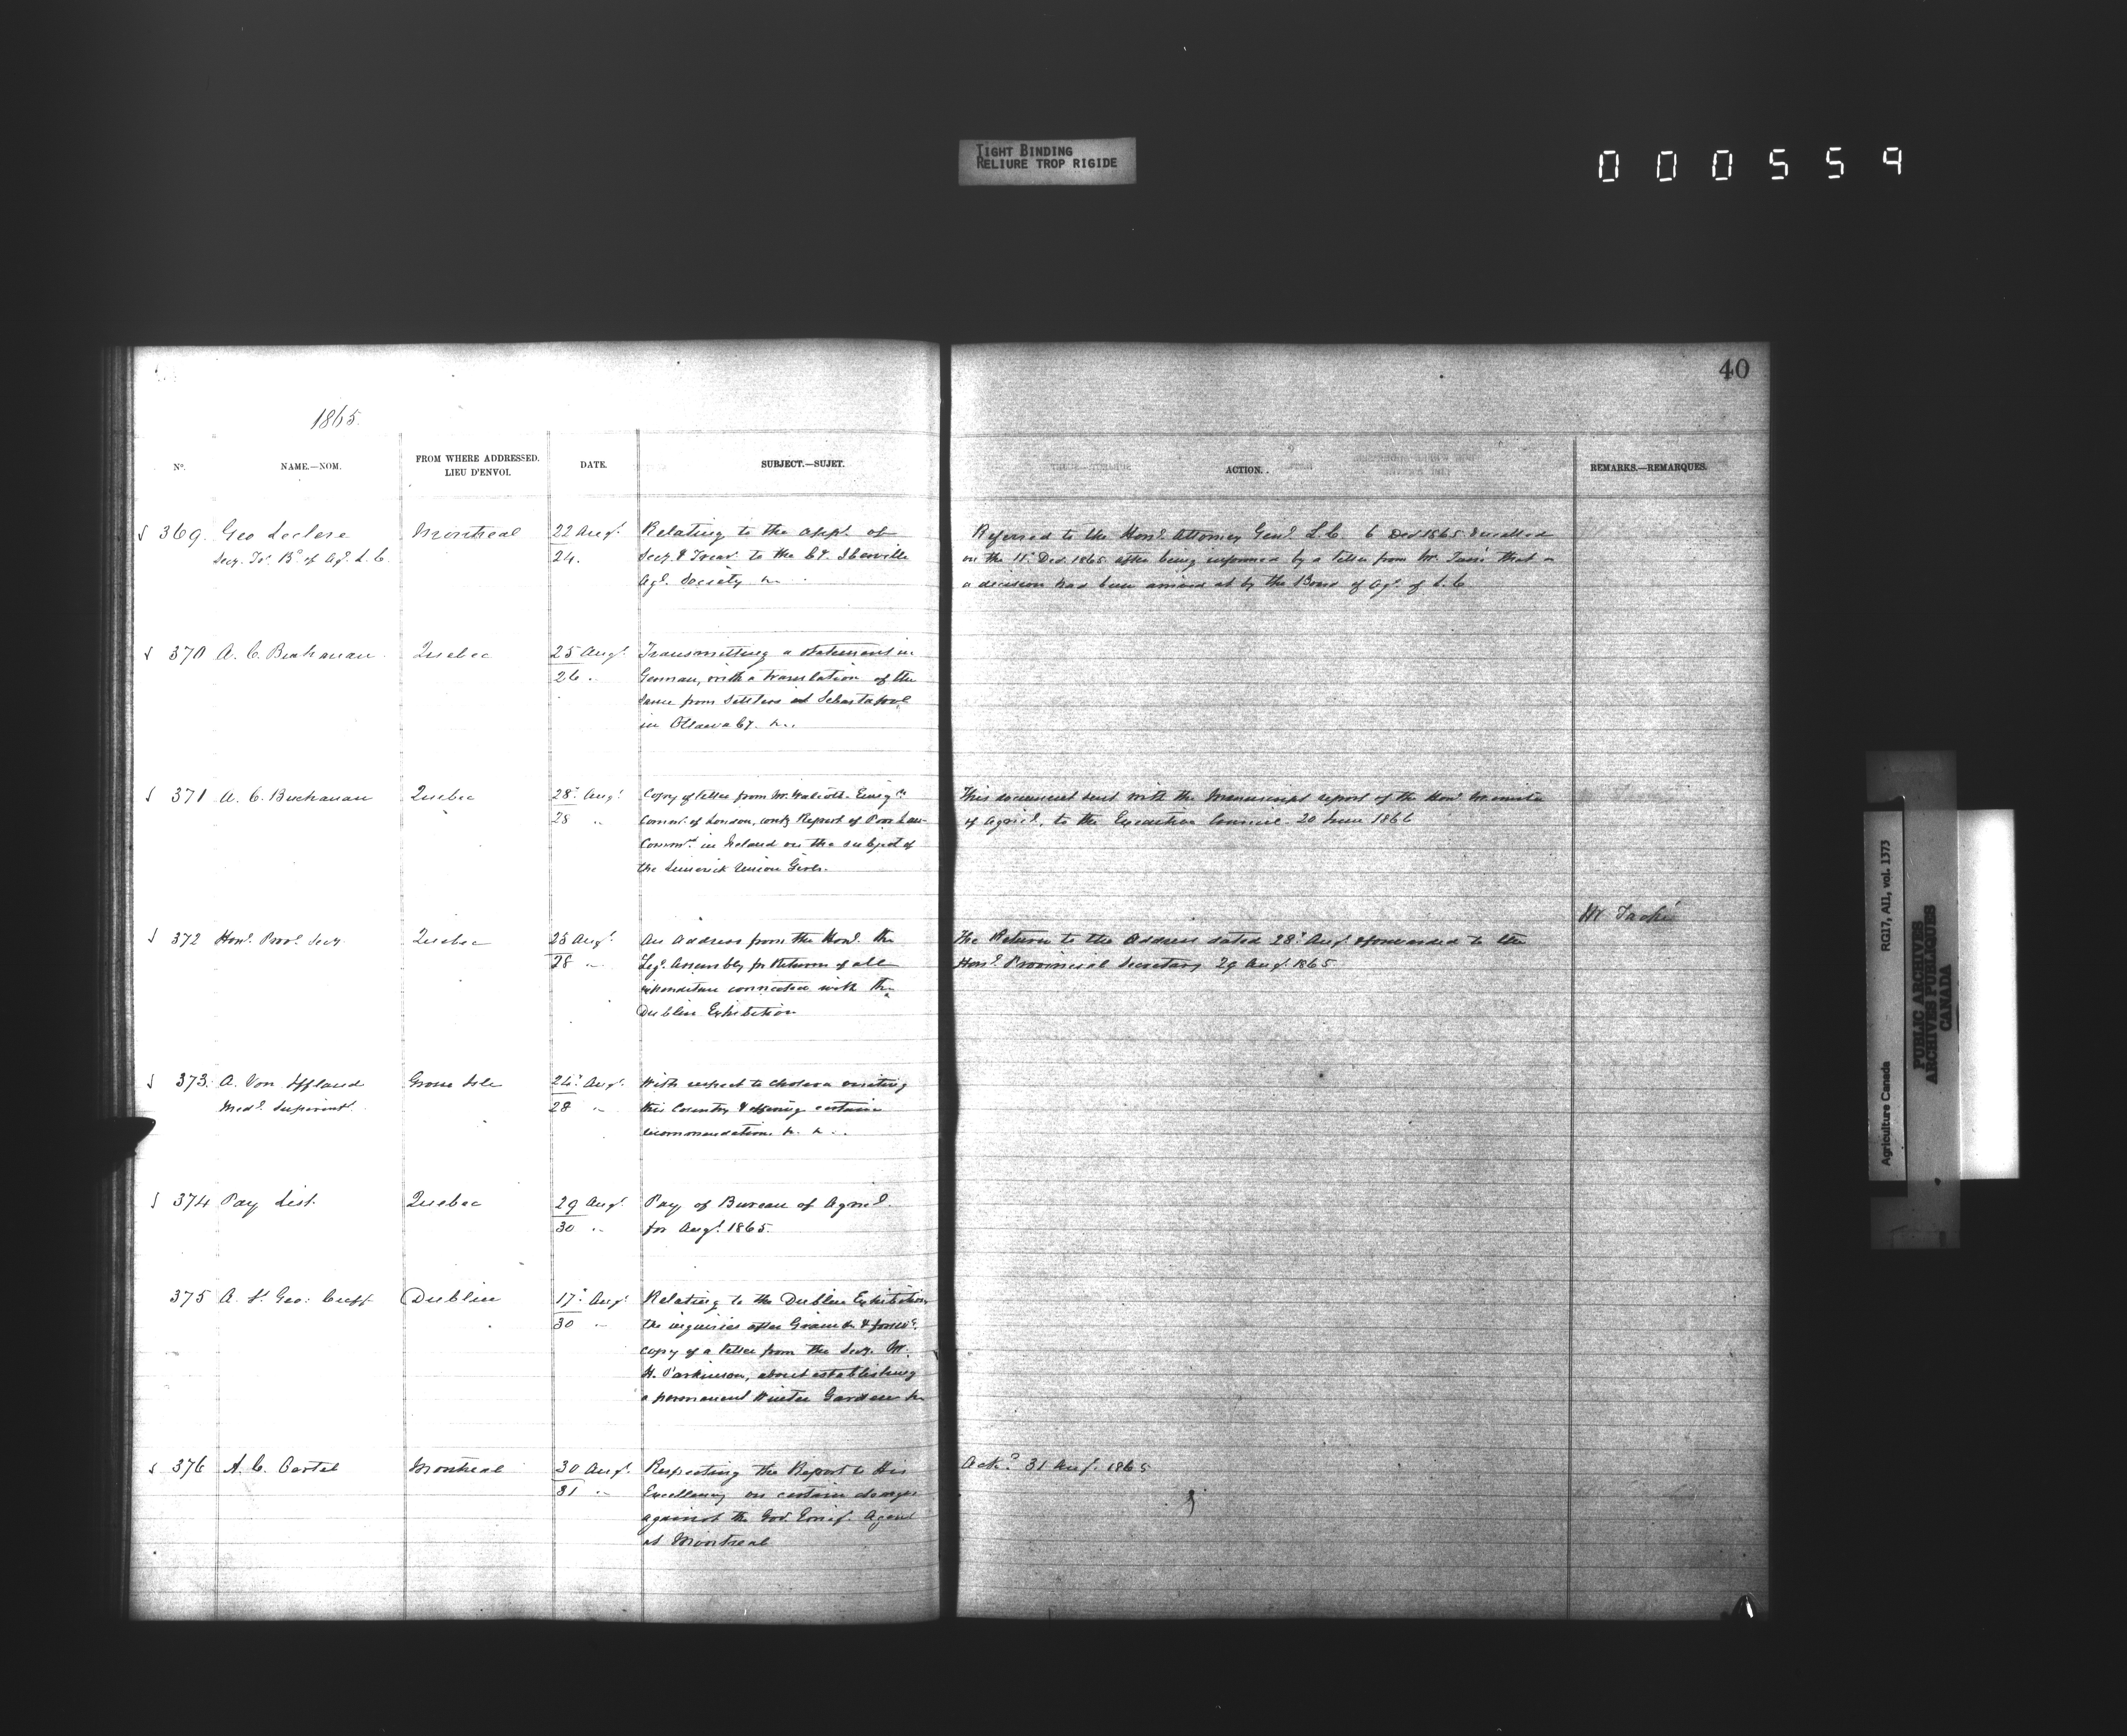 TIGHT BINDING
RELIURE TROP RIGIDE
000559
40
1865.
No. NAME.—NOM. FROM WHERE ADDRESSED. LIEU D'ENVOI. DATE. SUBJECT.—SUJET. ACTION. REMARKS.—REMARQUES.
369. Geo Leclere Montreal 22 Augt. Relating to the appt. of Referred to the Honl. Attorney Genl. L.C. 6 Decr 1865 & recalled
Secy. Tr. Bd of Agl. L.C. 24. Secy & Treasr. to the Cy. Iberville on the 11th Decr. 1865 after being informed by a letter from Mr. that
Agl. Society &c. a decision had been arrived at by the Board of Agl. of L.C.
370 A. C. Buchanan Quebec 25 Augt. Transmitting a statement in
26 " German, with a translation of the
same from settlers at Sebastopol
in Ottawa Cy. &c.
371 A. C. Buchanan Quebec 28th Augt. Copy of letter from Mr. Walcott Emign. This document sent with the Manuscript report of the Honl. Minister
28 " Commr. of London, Report of Poor Law of Agricl. to the Executive Council 20 June 1866
Commrs. in Ireland on the subject of
the Limerick Union Girls.
Mr. Taché
372 Honl. Provl. Secy. Quebec 25 Augt. An Address from the Honl. the The Return to the Address dated 28th Augt. & forwarded to the
28 " Legl. Assembly for Return of all Honl. Provincial Secretary 29 Augt. 1865
expenditure connected with the
Dublin Exhibition
373. A. Von Iffland Grosse Isle 26th Augt. With respect to cholera visiting
Medl. Superintt. 28 " this Country & offering certain
recommendations &c. &c.
374 Pay List. Quebec 29 Augt. Pay of Bureau of Agricl.
30 " for Augt. 1865.
375 A. St. Geo: Cuff Dublin 17th Augt. Relating to the Dublin Exhibition
30 " the inquiries after Grain &c & forwdg.
copy of a letter from the Secy. Mr.
H. Parkinson, about establishing
a permanent Winter Garden &c
376 A. C. Montreal 30 Augt. Respecting the Report to His Ackd. 31 Augt. 1865
31 " Excellency on certain charges
against the Gov. Emigt. Agent
at Montreal
Agriculture Canada RG17, AII, vol. 1373
PUBLIC ARCHIVES
ARCHIVES PUBLIQUES
CANADA